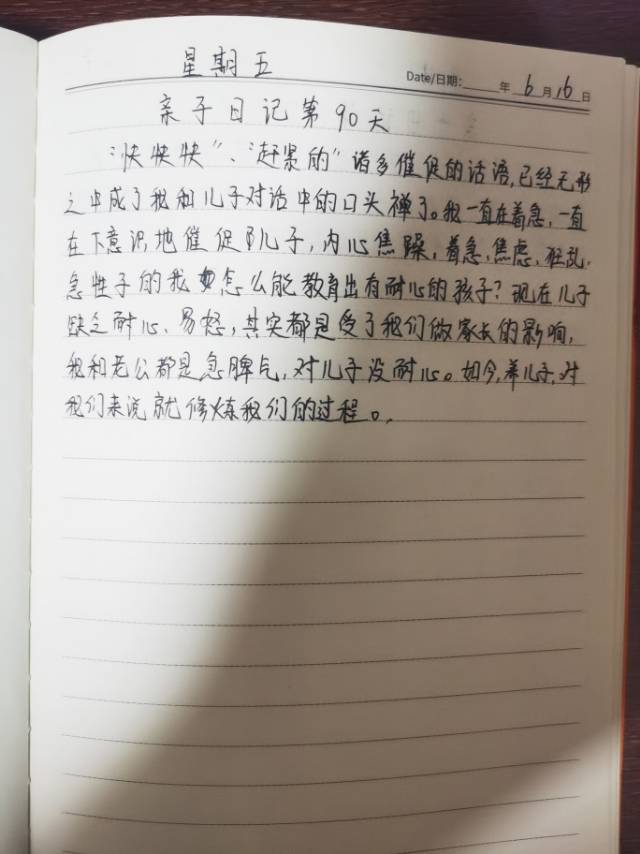 星期五
Date/日期: 年 6 月 16 日
亲子日记第90天
"快快快"、"赶紧的"诸多催促的话语,已经无形
之中成了我和儿子对话中的口头禅了。我一直在着急,一直
在下意识地催促儿子,内心焦躁,着急,焦虑,狂乱,
急性子的我怎么能教育出有耐心的孩子?现在儿子
缺乏耐心、易怒,其实都是受了我们做家长的影响,
我和老公都是急脾气,对儿子没耐心。如今,养儿子,对
我们来说就修炼我们的过程。